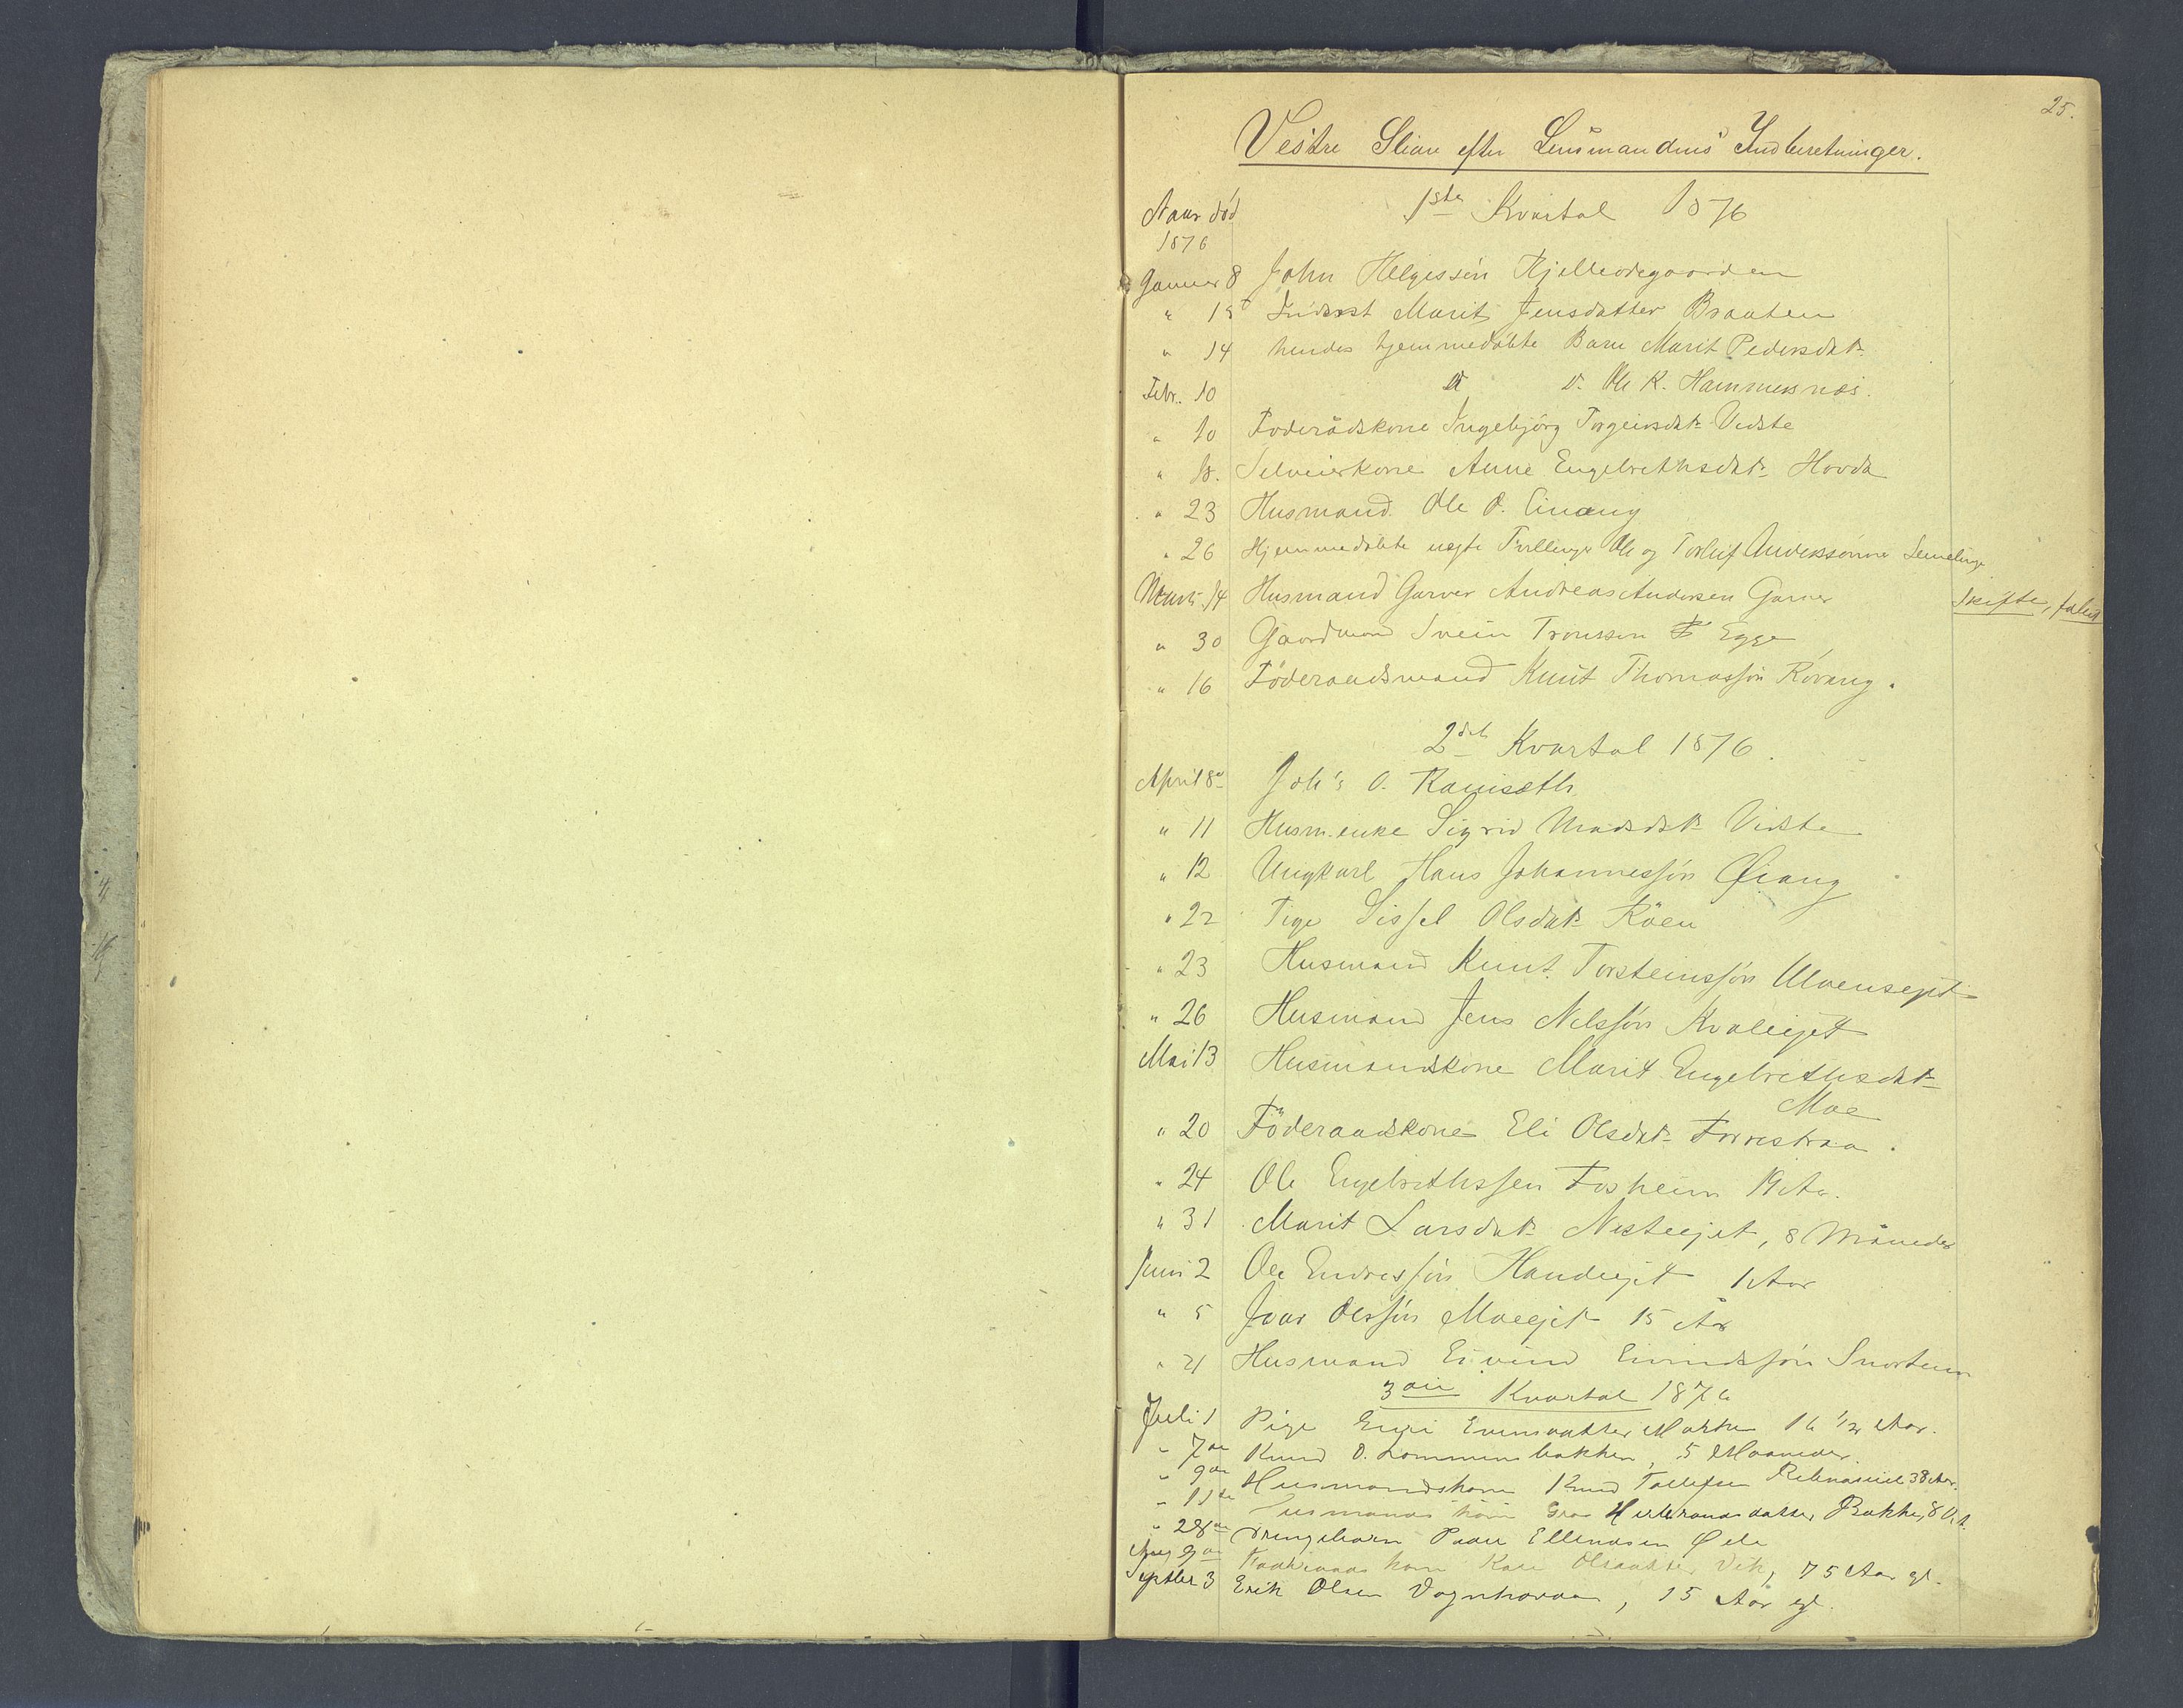 25.
Vestre Slire efter Lensmandens Indberetninger.
Naar død 1ste Kvartal 1876
1876
Januar 8 John Helgessøn Kjelleødegaarden
" 15 Inderst Marit Jensdatter Braaten
" 14 hendes hjemmedøbte Barn Marit Pedersdatr
Febr. 10 d. Ole K. Hammersnæs.
" 10 Foderådskone Ingebjörg Torgeirsdatr Vidste
" 18. Selveierkone Anne Engebrethsdatr Hovda
" 23 Husmand Ole O. Einang
" 26 Hjemmedøbte uegte Tvillinger Ole og Torleif Anderssønner Semeling
Marts 14 Husmand Garver Andreas Andersen Garver Skifte, falit
" 30 Gaardmand Svein Tronssen Egge
" 16 Föderaadsmand Knut Thomassøn Røvang.
2det Kvartal 1876.
April 8de Joh's O. Kauiseth
" 11 Husm.enke Sigrid Madsdatr Vidste
" 12 Ungkarl Hans Johannessøn Øiang
" 22 Pige Sissel Olsdatr Röen
" 23 Husmand Knut Torsteinssøn Ulvenseget
" 26 Husmand Jens Nelssøn Kvaleejet
Mai 13 Husmandskone Marit Engebrethsdatr
Moe
" 20 Föderaadskone Eli Olsdatr Forrestraa.
" 24 Ole Engebrethssen Fosheim 19 Aar.
" 31 Marit Larsdatr Nesteejet, 8 Måneder
Juni 2 Ole Endressøn Handeejet 1 Aar
" 5 Ivar Olssøn Moeejet 15 År
" 21 Husmand Eivind Eivindssøn Snortum
3die Kvartal 1876
Juli 1 Pige Guri Evensdatter 16 1/2 Aar.
" 7de Knud O. Lommensbakken, 5 Maaneder.
" 9de Husmandskone Knud Tollefsen 38 Aar.
" 11te Husmands kone Gro Hildebrandsdatter Bakke, 80
" 28de Drengebarn Paul Ellendsen Øde
Aug 9de kone Kari Olsdatter Vik, 75 Aar gl.
Septbr 3 Erik Olsen Vognharaa, 15 Aar gl.